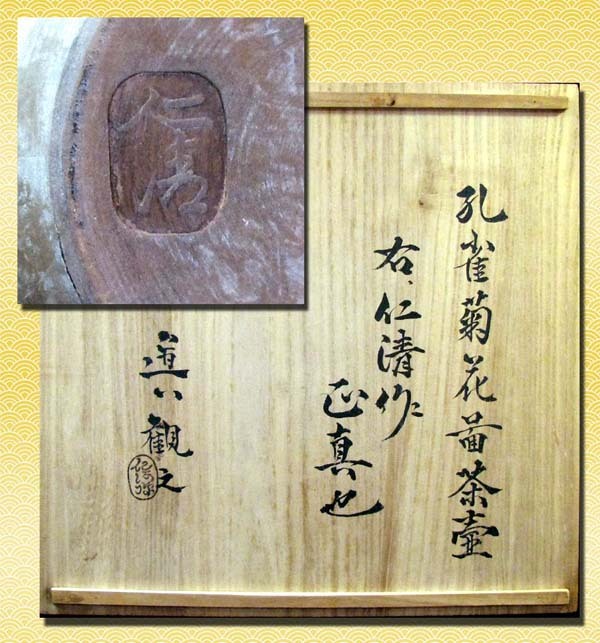 孔雀菊花啚茶壷
右、仁清作
正真也
道八観之
仁清